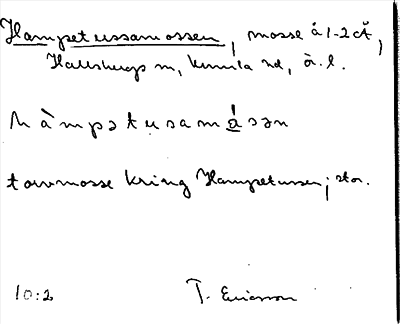 Hampetussamossen, mosse å 1-2 cÅ,
Hallsbergs sn, Kumla hd, Ö. l.
hàmpətusamǻsən
torvmosse kring Hampetussen; stor.
10:2 T. Ericsson